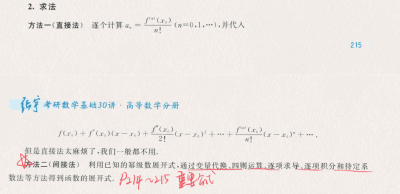 2. 求法
方法一(直接法) 逐个计算 aₙ = f⁽ⁿ⁾(x₀)/n! (n=0,1,…),并代入
215
张宇考研数学基础30讲·高等数学分册
f(x₀)+f′(x₀)(x−x₀)+f″(x₀)/2!(x−x₀)²+…+f⁽ⁿ⁾(x₀)/n!(x−x₀)ⁿ+….
但是直接法太麻烦了,我们一般都不用.
方法二(间接法) 利用已知的幂级数展开式,通过变量代换、四则运算、逐项求导、逐项积分和待定系
数法等方法得到函数的展开式. P214~215 重要公式